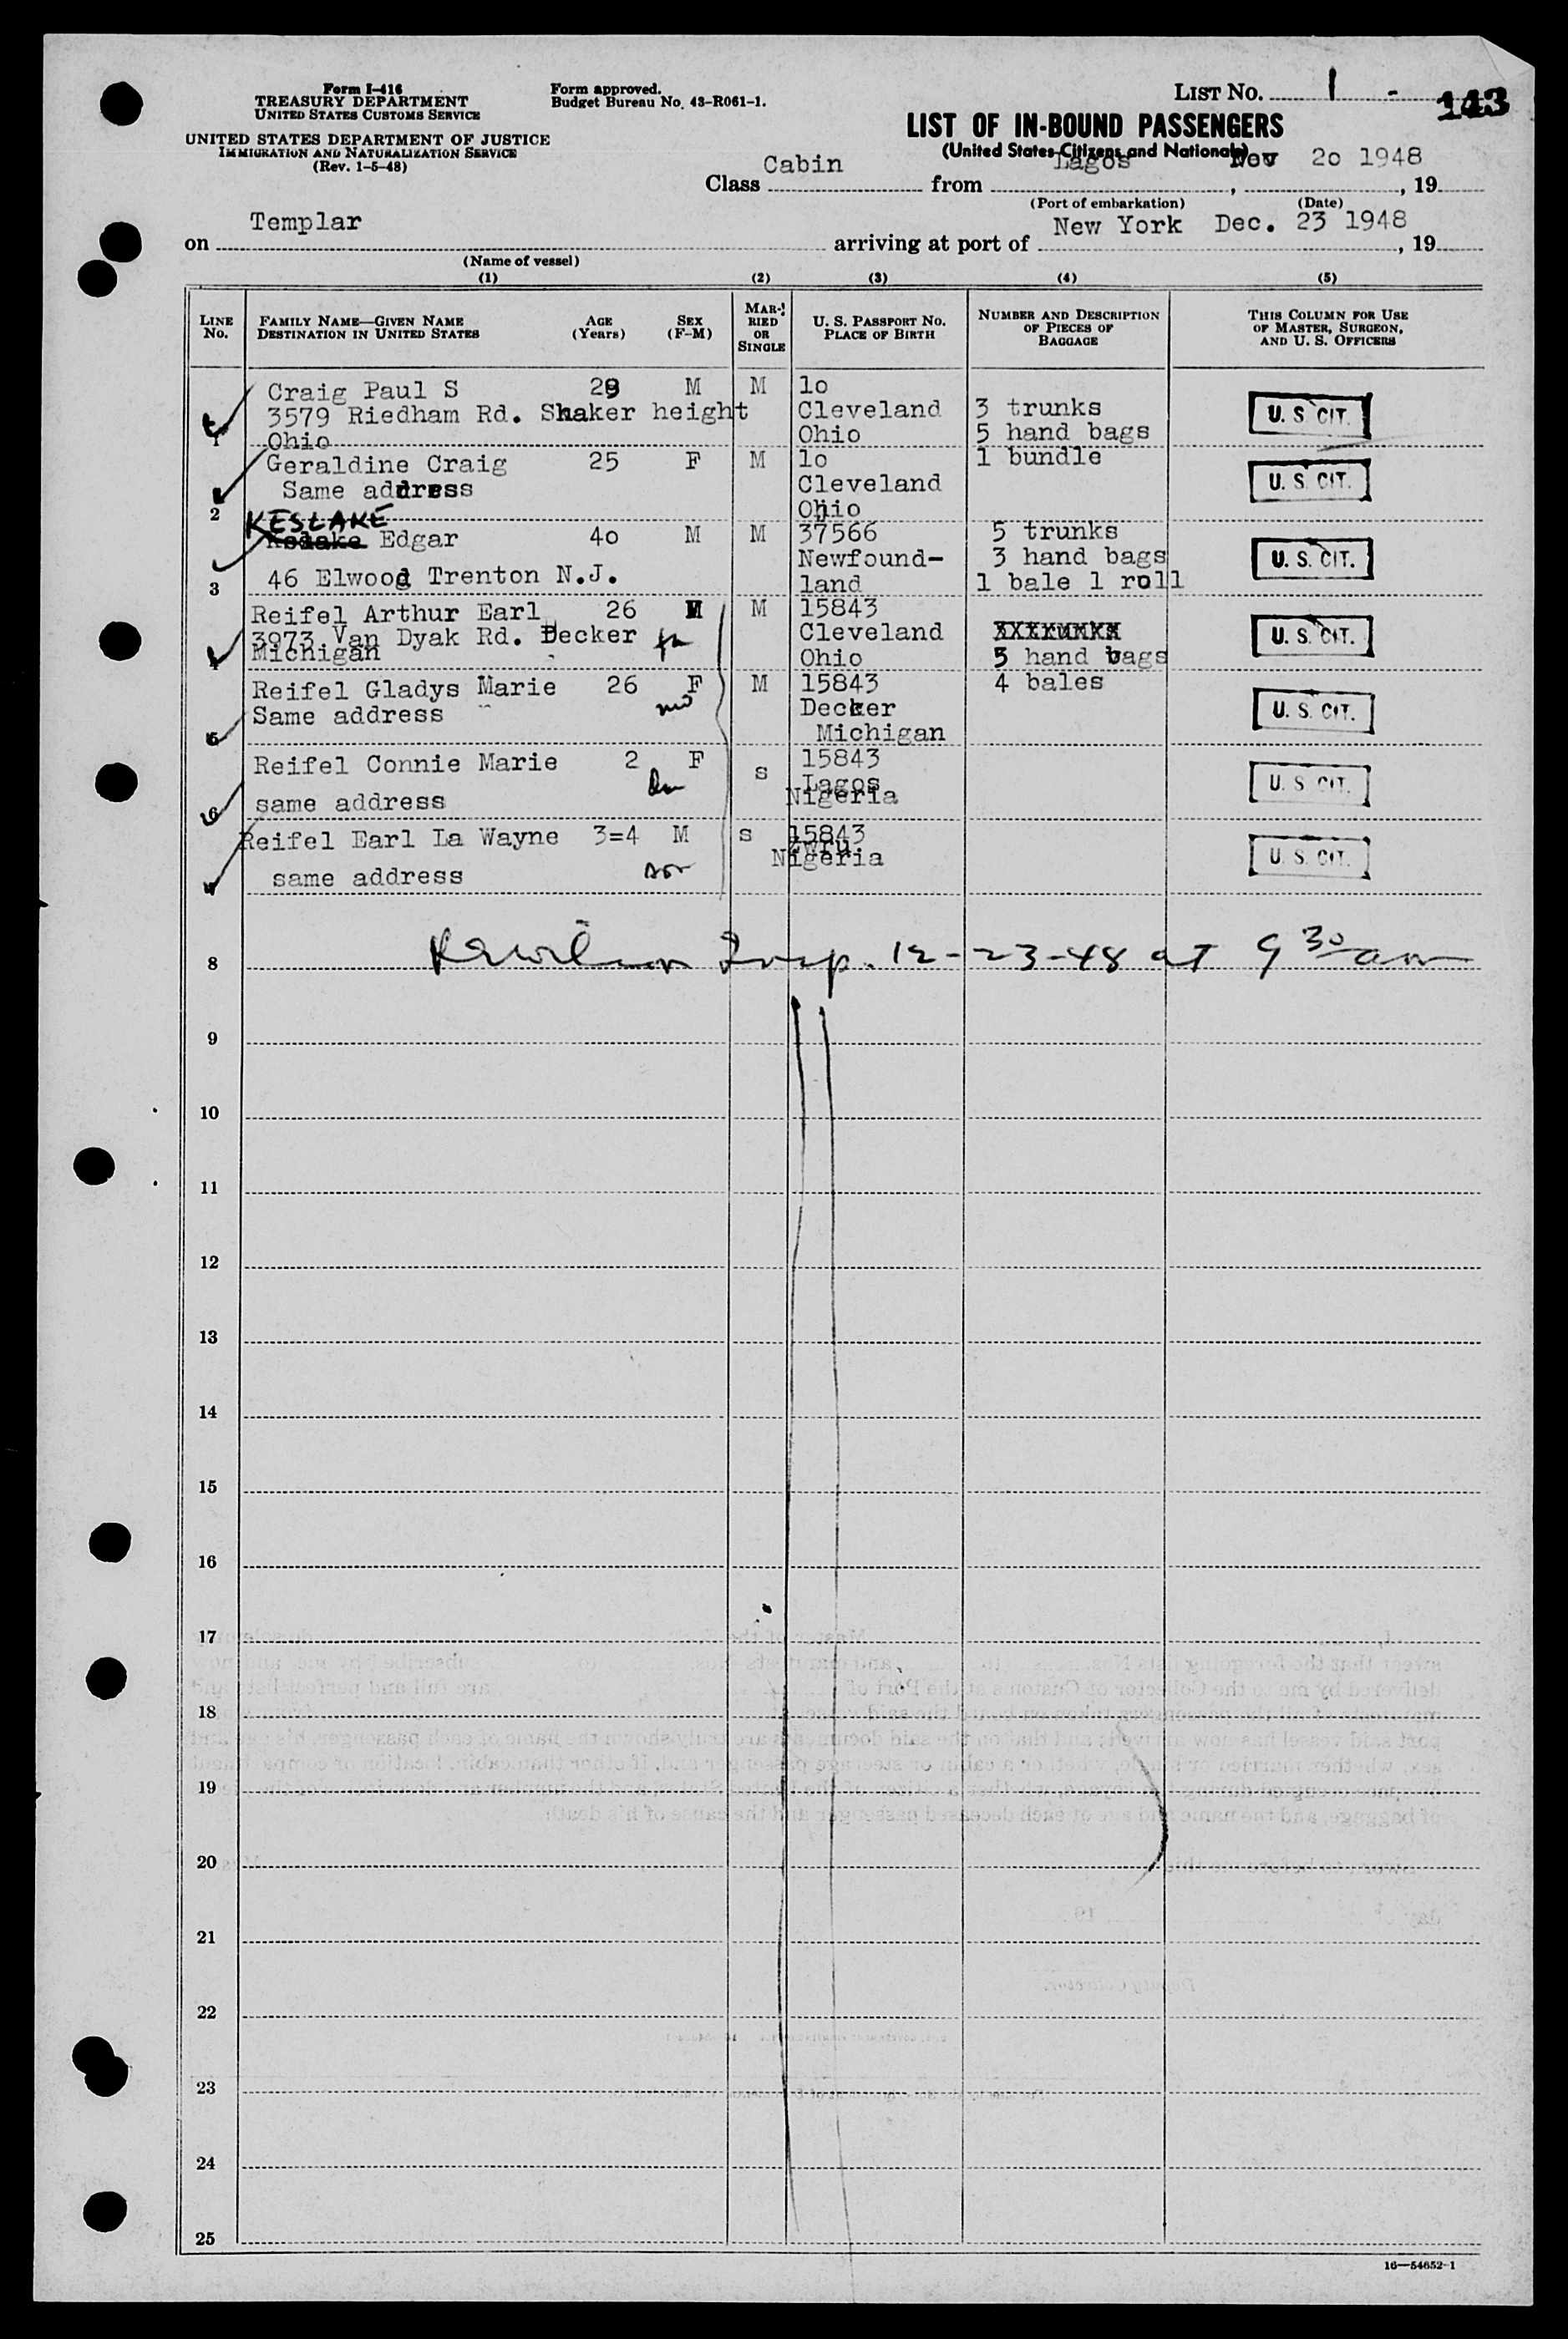 Form I-416
TREASURY DEPARTMENT
UNITED STATES CUSTOMS SERVICE
UNITED STATES DEPARTMENT OF JUSTICE
IMMIGRATION AND NATURALIZATION SERVICE
(Rev. 1-5-48)
Form approved.
Budget Bureau No. 43-R061-1.
LIST No. 1 - 143
LIST OF IN-BOUND PASSENGERS
(United States Citizens and Nationals)
Class Cabin from Lagos, Nov 20 1948, 19
(Port of embarkation) (Date)
on Templar arriving at port of New York Dec. 23 1948, 19
(Name of vessel)
(1) (2) (3) (4) (5)
LINE No. FAMILY NAME—GIVEN NAME DESTINATION IN UNITED STATES AGE (Years) SEX (F-M) MARRIED OR SINGLE U. S. PASSPORT No. PLACE OF BIRTH NUMBER AND DESCRIPTION OF PIECES OF BAGGAGE THIS COLUMN FOR USE OF MASTER, SURGEON, AND U. S. OFFICERS
Craig Paul S 29 M M 10
3579 Riedham Rd. Shaker height Cleveland 3 trunks U. S. CIT.
1 Ohio Ohio 5 hand bags
Geraldine Craig 25 F M 10 1 bundle
Same address Cleveland U. S. CIT.
2 Ohio
KESLAKE
Keslake Edgar 40 M M 37566 5 trunks
Newfound- 3 hand bags U. S. CIT.
3 46 Elwood Trenton N.J. land 1 bale 1 roll
Reifel Arthur Earl 26 M M 15843
3973 Van Dyak Rd. Decker fa Cleveland U. S. CIT.
4 Michigan Ohio 5 hand bags
Reifel Gladys Marie 26 F M 15843 4 bales
Same address mo Decker U. S. CIT.
5 Michigan
Reifel Connie Marie 2 F s 15843
Lagos U. S. CIT.
6 same address Nigeria
Reifel Earl La Wayne 3=4 M s 15843
Nigeria U. S. CIT.
7 same address son
8 Insp. 12-23-48 at 9 30 am
9
10
11
12
13
14
15
16
17
18
19
20
21
22
23
24
25
16—54652-1